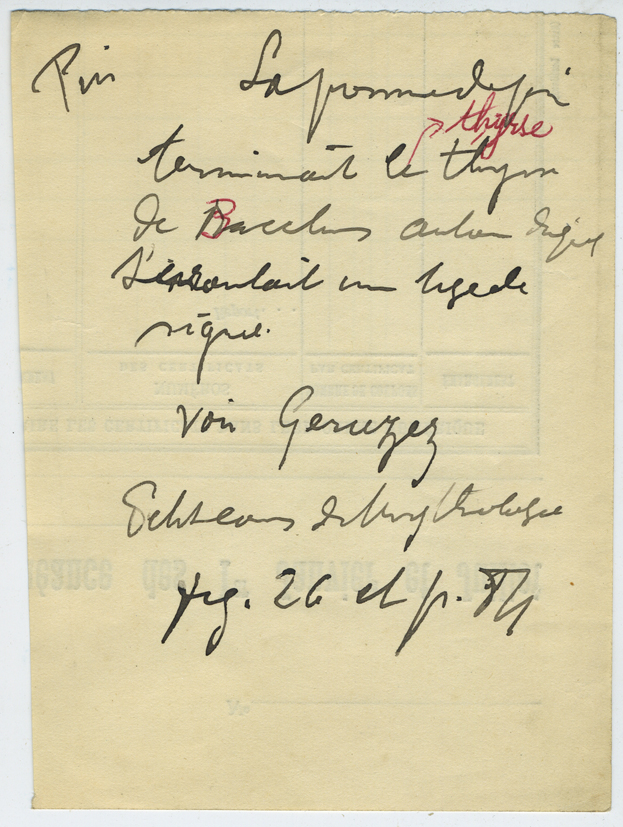 Pin La pomme de pin
thyrse
terminait le thyrse
de Bacchus autour duquel
s'enroulait une tige de
vigne.
Voir Geruzez
Petit cours de Mythologie
fig. 26 et p. 84